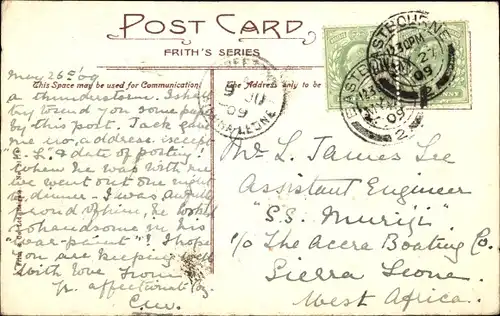 POST CARD
FRITH'S SERIES
This Space may be used for Communication.
The Address only to be
EASTBOURNE
12.30 PM
27
09
2
EASTBOURNE
09
2
09
May 26th/09
a thunderstorm. I shall
try & send you some papers
by this post. Jack gave
me no address except
"S.L. & date of posting"!
when he was with me
we went out one night
to dinner. I was awfully
proud of him, he looked
so handsome in his
"war-paint"! I hope
you are keeping well
With love from
yr. affectionate
Mr L. James Lee
Assistant Engineer
"S.S. Muriji"
c/o The Accra Boating Co.
Sierra Leone.
West Africa.